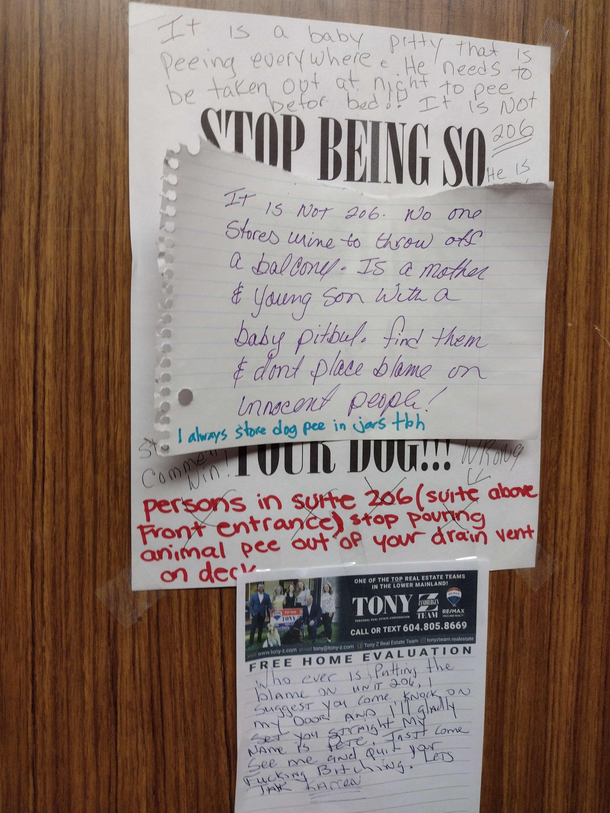 It is a baby pitty that is
peeing everywhere. He needs to
be taken out at night to pee
befor bed!! It is NOT
206
STOP BEING SO
He is
It is Not 206. No one
Stores urine to throw off
a balcony. Is a mother
& young son with a
baby pitbul. find them
& dont place blame on
innocent people!
I always store dog pee in jars tbh
Comment
Win!
YOUR DOG!!!
WRONG
persons in suite 206 (suite above
Front entrance) stop pouring
animal pee out of your drain vent
on deck
ONE OF THE TOP REAL ESTATE TEAMS
IN THE LOWER MAINLAND!
TONY Z TEAM
RE/MAX
CALL OR TEXT 604.805.8669
www.tony-z.com tony@tony-z.com Tony Z Real Estate Team tonyzteam.realestate
FREE HOME EVALUATION
Who ever is putting the
blame on unit 206, I
suggest you come knock on
my door and I'll gladly
set you straight my
name is Pete. Just come
see me and quit your
fucking bitching. Lets
talk Karren